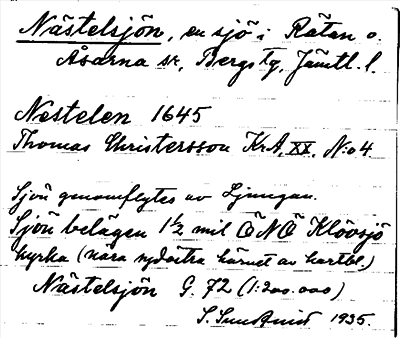 Nästelsjön, en sjö i Räten o.
Åsarna sr, Bergs tg, Jämtl. l.
Nestelen 1645
Thomas Christersson Kr.A, XX, N:o 4
Sjön genomflytes av Ljungan.
Sjön belägen 1½ mil ÖNÖ Klövsjö
kyrka (nära sydöstra hörnet av kartbl.)
Nästelsjön G. 72 (1:200.000)
S. Sundqvist 1935.